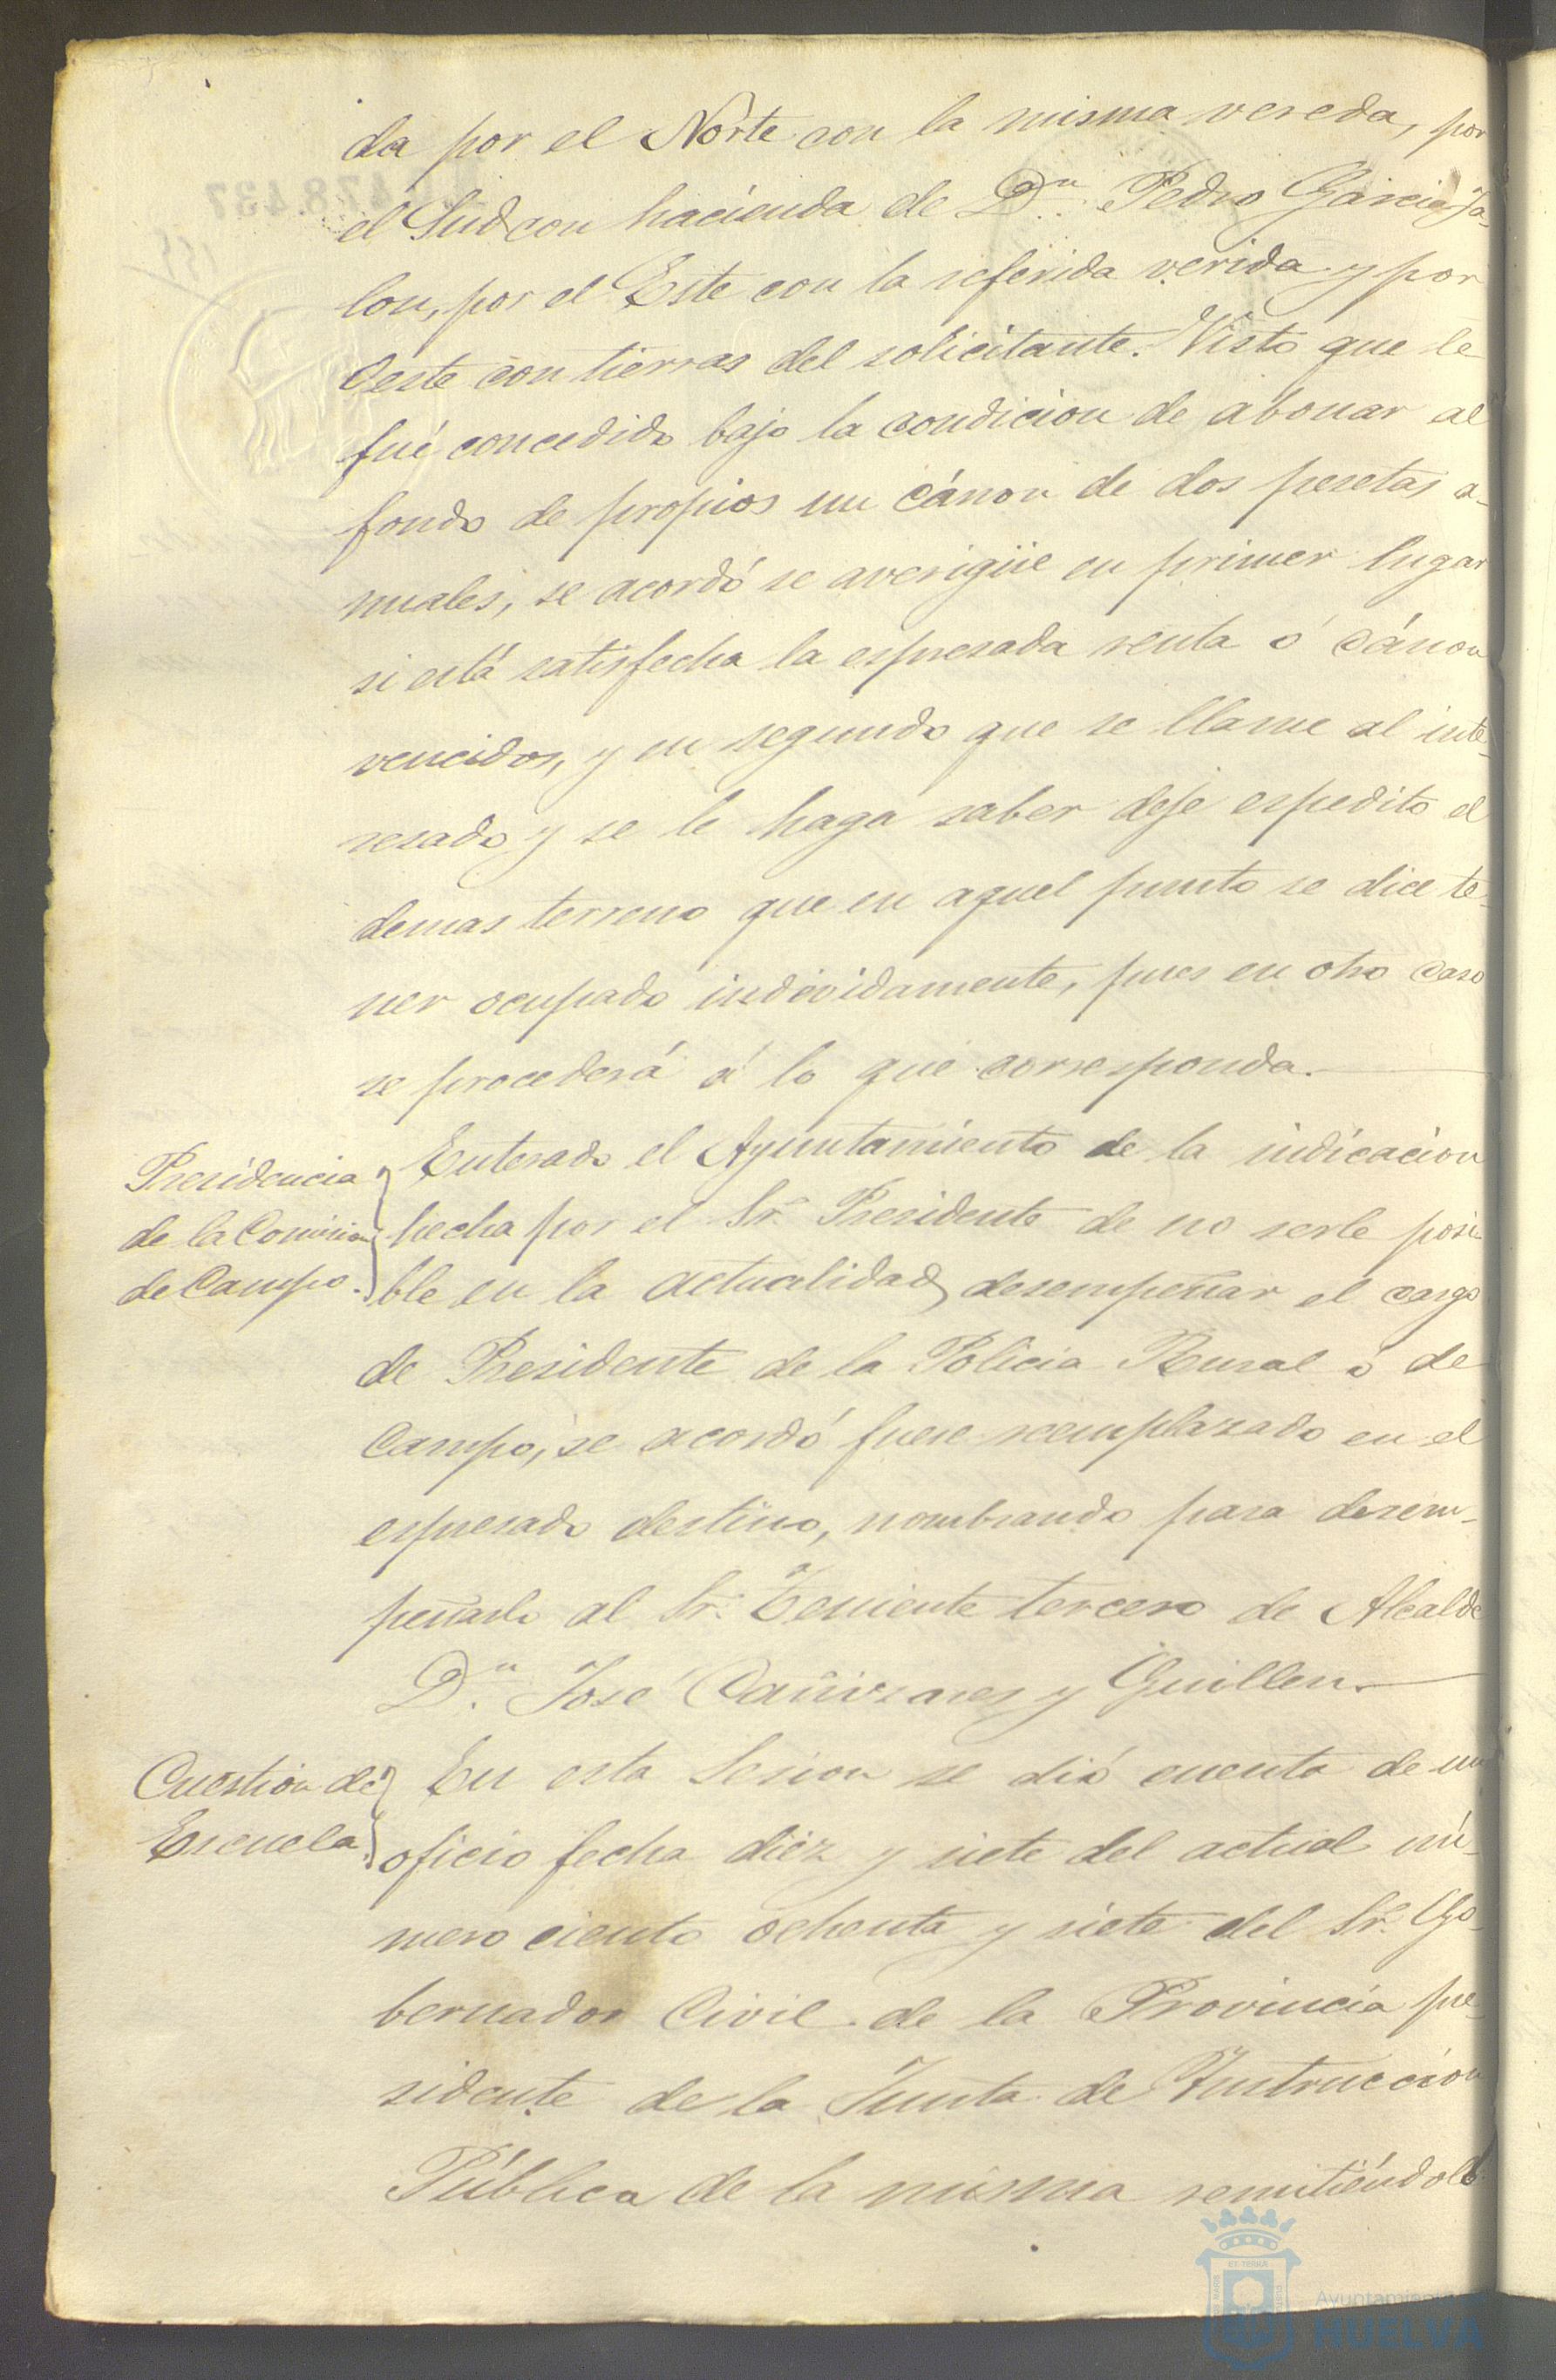 da por el Norte con la misma vereda, por
el Sud con hacienda de Dn. Pedro Garcia Ja-
lon, por el Este con la referida verida y por
Oeste con tierras del solicitante. Visto que le
fué concedido bajo la condicion de abonar al
fondo de propios un cánon de dos pesetas a-
nuales, se acordó se averigüe en primer lugar
si está satisfecha la espresada renta ó cánon
vencidos, y en segundo que se llame al inte-
resado y se le haga saber deje espedito el
demas terreno que en aquel punto se dice te-
ner ocupado indevidamente, pues en otro caso
se procederá á lo que corresponda.
Presidencia
de la Comision
de Campo.
Enterado el Ayuntamiento de la indicacion
hecha por el Sr. Presidente de no serle posi-
ble en la actualidad desempeñar el cargo
de Presidente de la Policia Rural ó de
Campo, se acordó fuese reemplazado en el
espresado destino, nombrando para desem-
peñarlo al Sr. Teniente tercero de Alcalde
Dn. José Cañizares y Guillen.
Cuestion de
Escuela.
En esta Sesion se dió cuenta de un
oficio fecha diez y siete del actual nú-
mero ciento ochenta y siete del Sr. Go-
bernador Civil de la Provincia pre-
sidente de la Junta de Instruccion
Pública de la misma remitiéndole
Ayuntamiento de
HUELVA